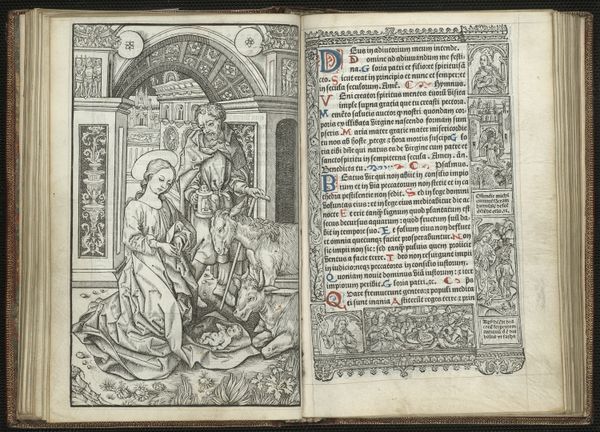 Deus in adiutorium meum intende.
Domine ad adiuuandum me festi
na. Gloria patri et filio et spiritui sā
cto. Sicut erat in principio et nunc et semper: et
in secula seculorum. Amē. Hymnus.
Veni creator spiritus mentes tuorū visita
imple superna gratia que tu creasti pectora.
Memēto salutis auctor ꝙ nostri quondam cor
poris ex illibata virgine nascendo formam sum
pseris. Maria mater gratie mater misericordie
tu nos ab hoste protege et hora mortis suscipe. Glo
ria tibi dñe qui natus es de virgine cum patre et
sancto spiritu in sempiterna secula. Amen. añ.
Benedicta tu. Psalmus.
Beatus vir qui non abiit in consilio impio
rum et in via peccatorum non stetit: et in ca
thedra pestilentie non sedit. Sed in lege domini
voluntas eius: et in lege eius meditabitur die ac
nocte. Et erit tanq̄ lignum quod plantatum est
secus decursus aquarum: quod fructum suū da
bit in tempore suo. Et folium eius non defluet
et omnia quecunq̄ faciet prosperabuntur. Non
sic impii non sic: sed tanq̄ puluis quem proiicit
ventus a facie terre. Ideo non resurgunt impii
in iudicio: neq̄ peccatores in consilio iustorum.
Quoniam nouit dominus viā iustorum: et iter
impiorum peribit. Gloria patri. ꝛc. ps
Quare fremuerunt gentes: et populi medita
ti sunt inania. Astiterūt reges terre et prin